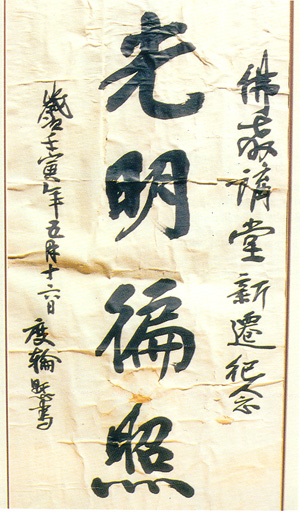 佛教講堂新遷紀念
光明徧照
歲次壬寅年五月十六日
度輪敬書